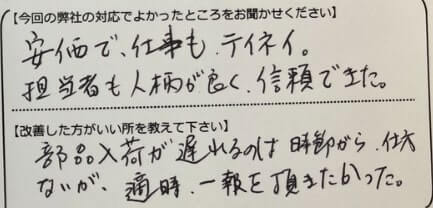 【今回の弊社の対応でよかったところをお聞かせください】
安価で、仕事も、テイネイ。
担当者も人柄が良く、信頼できた。
【改善した方がいい所を教えて下さい】
部品入荷が遅れるのは時節から、仕方
ないが、適時、一報を頂きたかった。